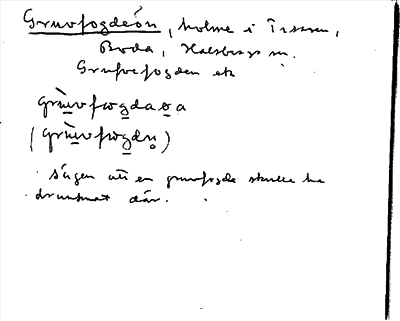 Gruvfogdeön, holme i Tisaren,
Boda, Hallsbergs sn.
Grufvefogden ek
grù̲vfωg̲daɷ̲a
(grù̲vfωg̲dn̥)
Sägen att en gruvfogde skulle ha
drunknat där.